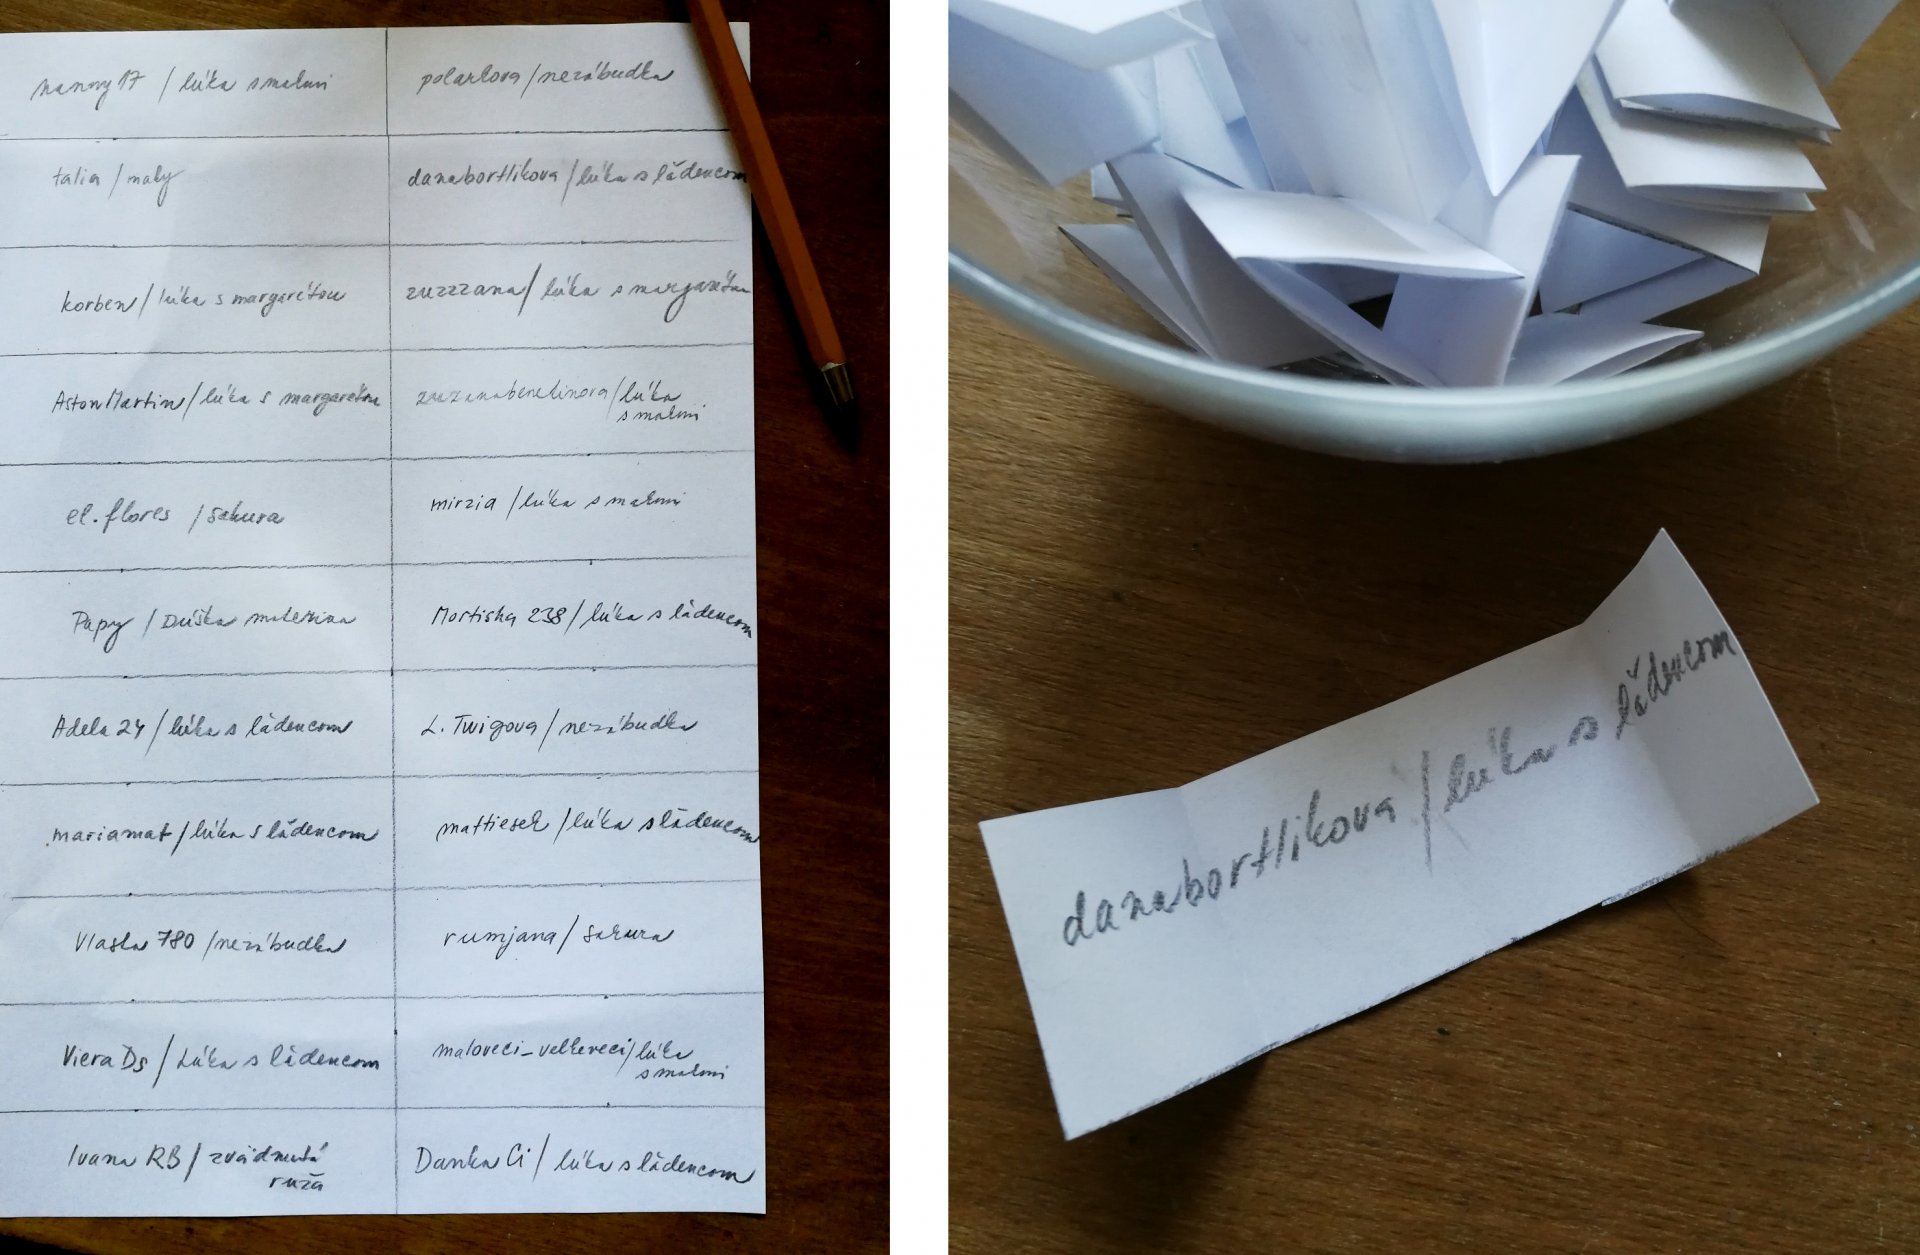 nanny17 / lúka s makmi
polarkova / nezábudka
talia / maky
danabortlikova / lúka s ládencom
korben / lúka s margarétou
zuzzzana / lúka s margarétou
AstonMartin / lúka s margarétou
zuzanabenelinova / lúka
s makmi
el.flores / sakura
mirzia / lúka s makmi
Papy / Dúška materina
Mortisha 238 / lúka s ládencom
Adela 24 / lúka s ládencom
L. Twigova / nezábudka
mariamat / lúka s ládencom
mattiesek / lúka s ládencom
Vlasta 780 / nezábudka
rumjana / sakura
Viera Ds / Lúka s ládencom
maloveci_velkeveci / lúka
s makmi
Ivana RB / zvädnutá
ruža
Danka Ci / lúka s ládencom
danabortlikova / lúka s ládencom